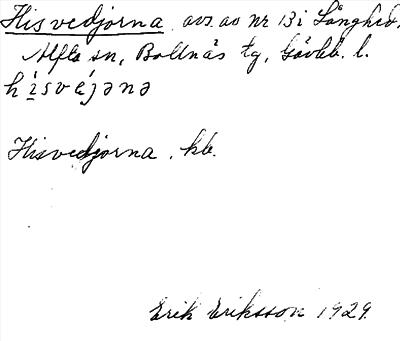 Hisvedjorna avs. av nr 13 i Långhed,
Alfta sn, Bollnäs tg, Gävleb. l.
hisvéjənə
Hisvedjorna. kb.
Erik Eriksson 1929.